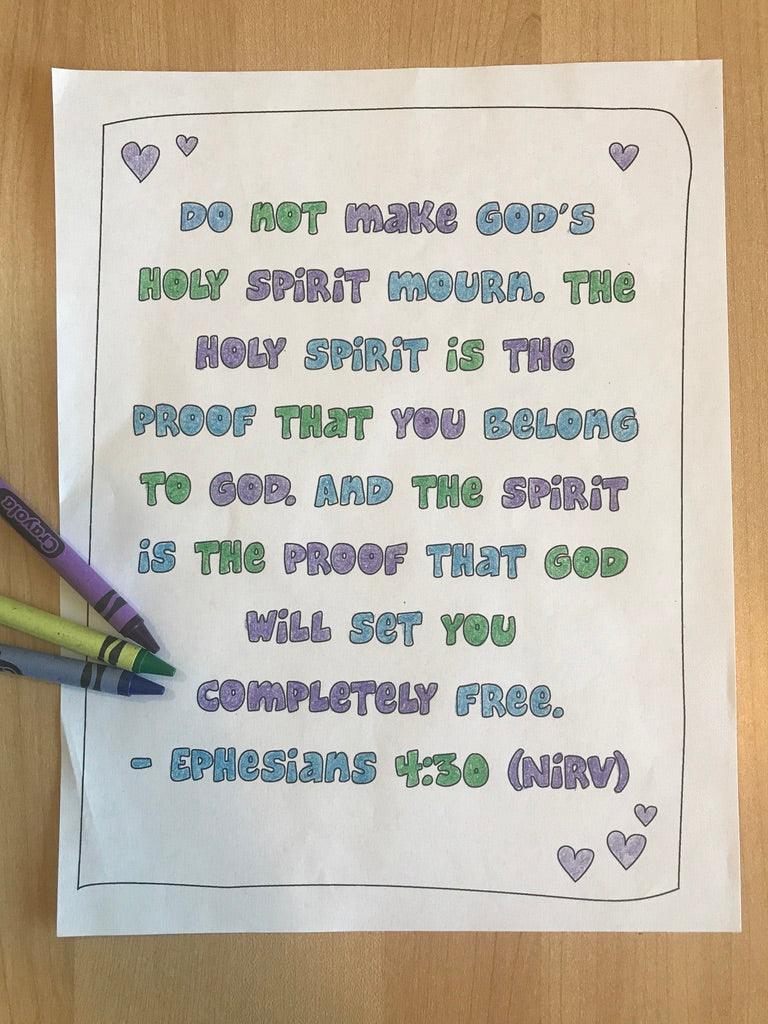 DO NOT make GOD'S
HOLY SPiRiT mourn. THe
HOLY SPiRiT is THe
PROOF THaT YOU BeLONG
TO GOD. AND THe SPiRiT
is THe PROOF THaT GOD
WiLL SeT YOU
COmPLeTeLY FRee.
- EPHesians 4:30 (NiRV)
Crayola